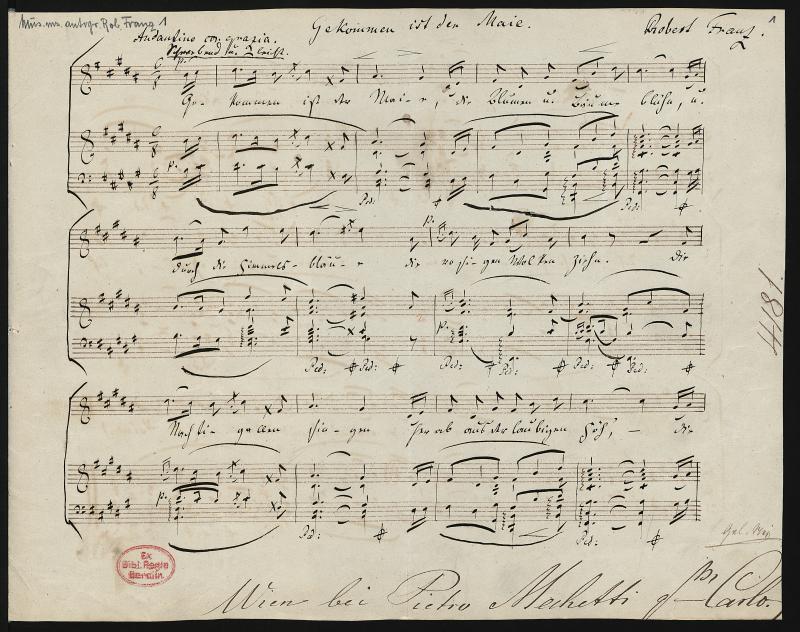 Mus. ms. autogr. Rob. Franz 1
Gekommen ist der Maie.
Robert Franz.
1
Andantino con grazia.
p.
Ge- kommen ist der Mai- e, die Blumen u. Bäume blühn, u.
p.
Ped:
Ped:
p.
durch die Himmels- bläu- e die rosigen Wolken ziehn. Die
p.
Ped: Ped: Ped: Ped: Ped: Ped:
1844
Nachti- gallen sin- gen herab aus der laubigen Höh', – die
p.
Ped:
Ped:
Ex
Bibl. Regia
Berolin.
Wien bei Pietro Mechetti qm Carlo.